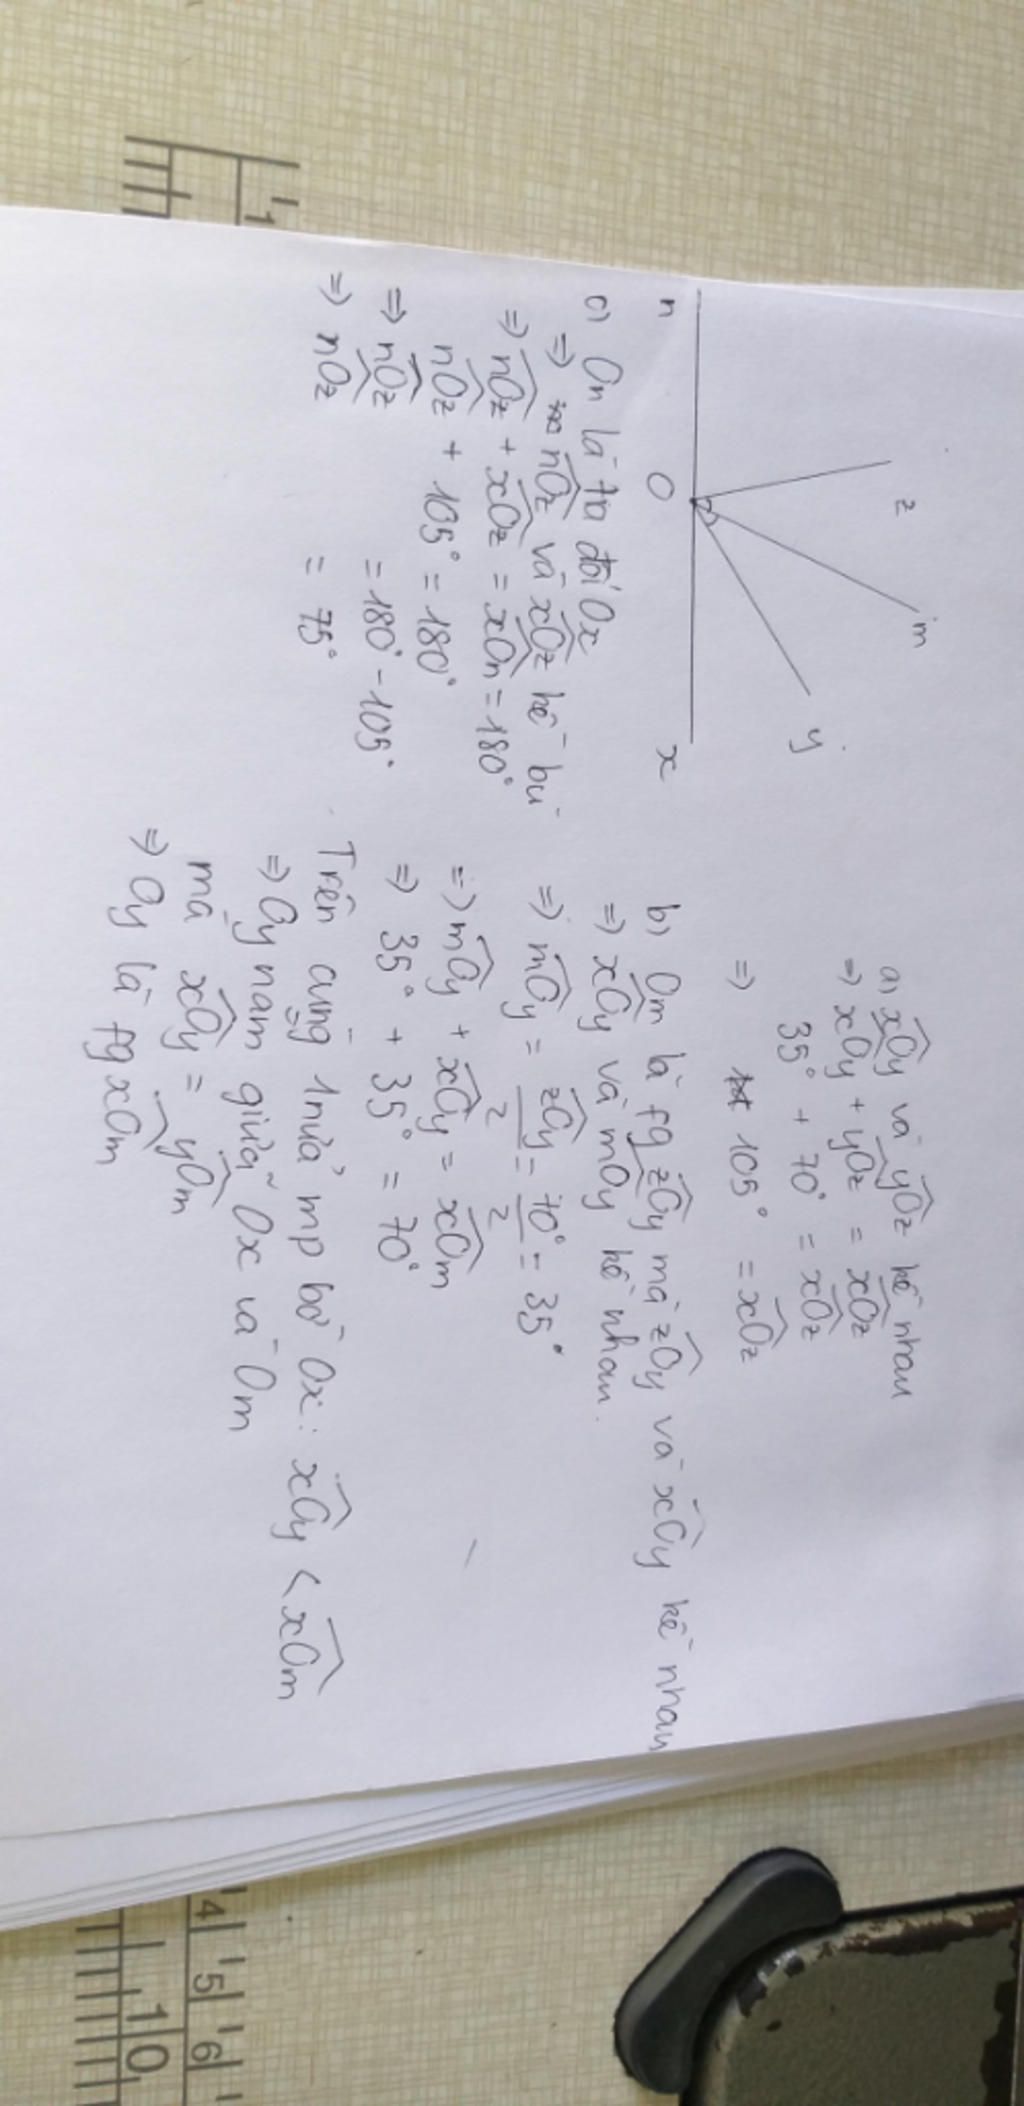 z
m
y
n
O
x
a) xOy và yOz kề nhau
⇒ xOy + yOz = xOz
35° + 70° = xOz
⇒ 105° = xOz
b) Om là fg zOy mà zOy và xOy kề nhau
⇒ xOy và mOy kề nhau.
⇒ mOy = zOy/2 = 70°/2 = 35°
⇒ mOy + xOy = xOm
⇒ 35° + 35° = 70°
Trên cùng 1 nửa mp bờ Ox: xOy < xOm
⇒ Oy nằm giữa Ox và Om
mà xOy = yOm
⇒ Oy là fg xOm
c) On là tia đối Ox
⇒ nOz và xOz kề bù
⇒ nOz + xOz = xOn = 180°
nOz + 105° = 180°
⇒ nOz = 180° - 105°
⇒ nOz = 75°
1
4 5 6
10